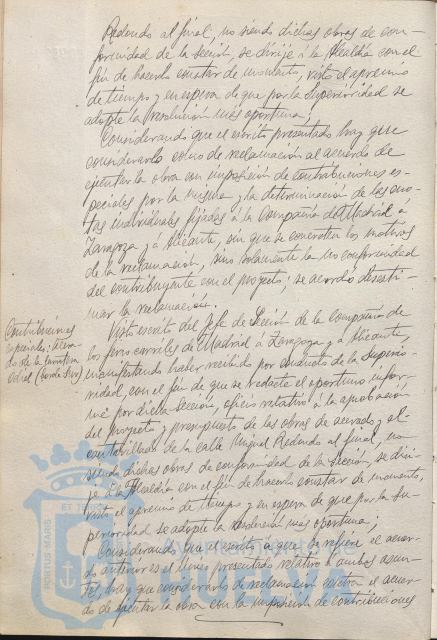 Redondo al final, no siendo dichas obras de con-
formidad de la Sección, se dirije á la Alcaldía con el
fin de hacerlo constar de momento, visto el apremio
de tiempo y en espera de que por la Superioridad se
adopte la resolución más oportuna;
Considerando que el escrito presentado hay que
considerarlo como de reclamación al acuerdo de
ejecutar la obra con imposición de contribuciones es-
peciales por la misma y la determinación de las cuo-
tas individuales fijadas á la Compañía de Madrid á
Zaragoza y á Alicante, sin que se concreten los motivos
de la reclamación, sino solamente la no conformidad
del contribuyente con el proyecto; se acordó desesti-
mar la reclamación.
Contribuciones
especiales: Acera-
do de la carretera
Odiel (borde Sur)
Visto escrito del Jefe de Sección de la Compañía de
los ferrocarriles de Madrid á Zaragoza y á Alicante,
manifestando haber recibido por conducto de la Superio-
ridad, con el fin de que se redacte el oportuno infor-
me por dicha Sección, oficio relativo á la aprobación
del proyecto y presupuesto de las obras de acerado y al-
cantarillado de la calle Miguel Redondo al final, no
siendo dichas obras de conformidad de la Sección, se diri-
je á la Alcaldía con el fin de hacerlo constar de momento,
visto el apremio de tiempo y en espera de que por la Su-
perioridad se adopte la resolución más oportuna;
Considerando que el escrito a que se refiere el acuer-
do anterior es el único presentado relativo a ambos asun-
tos, hay que considerarlo de reclamación contra el acuer-
do de ejecutar la obra con la imposición de contribuciones
PORTUS MARIS
ET TERRAE
Ayuntamiento de
HUELVA